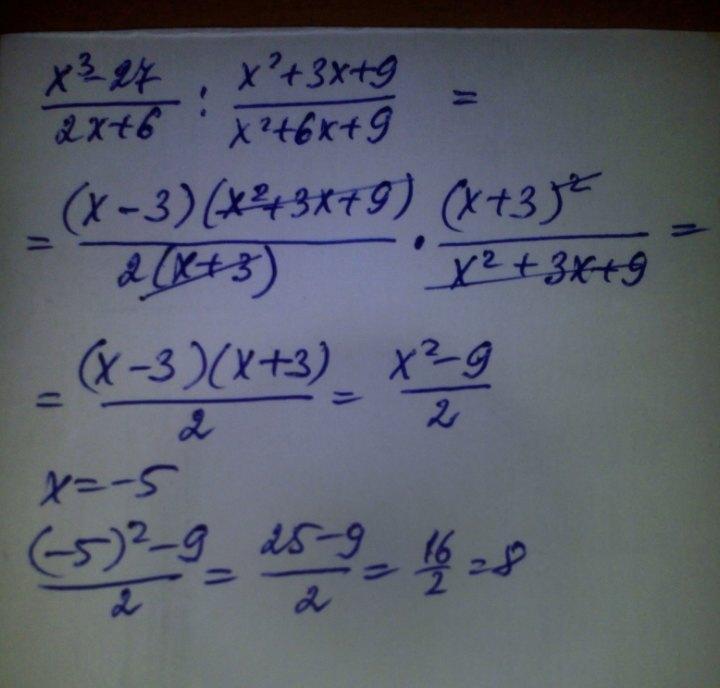 x³-27/2x+6 : x²+3x+9/x²+6x+9 =
= (x-3)(x²+3x+9)/2(x+3) · (x+3)²/x²+3x+9 =
= (x-3)(x+3)/2 = x²-9/2
x=-5
(-5)²-9/2 = 25-9/2 = 16/2 = 8